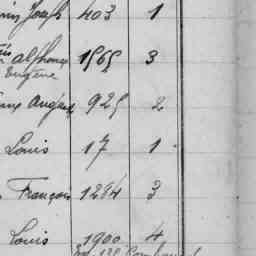 Joseph 403 1
Alphonse 1565 3
Eugène
925 2
Louis 17 1
François 1284 3
Louis 1900 4